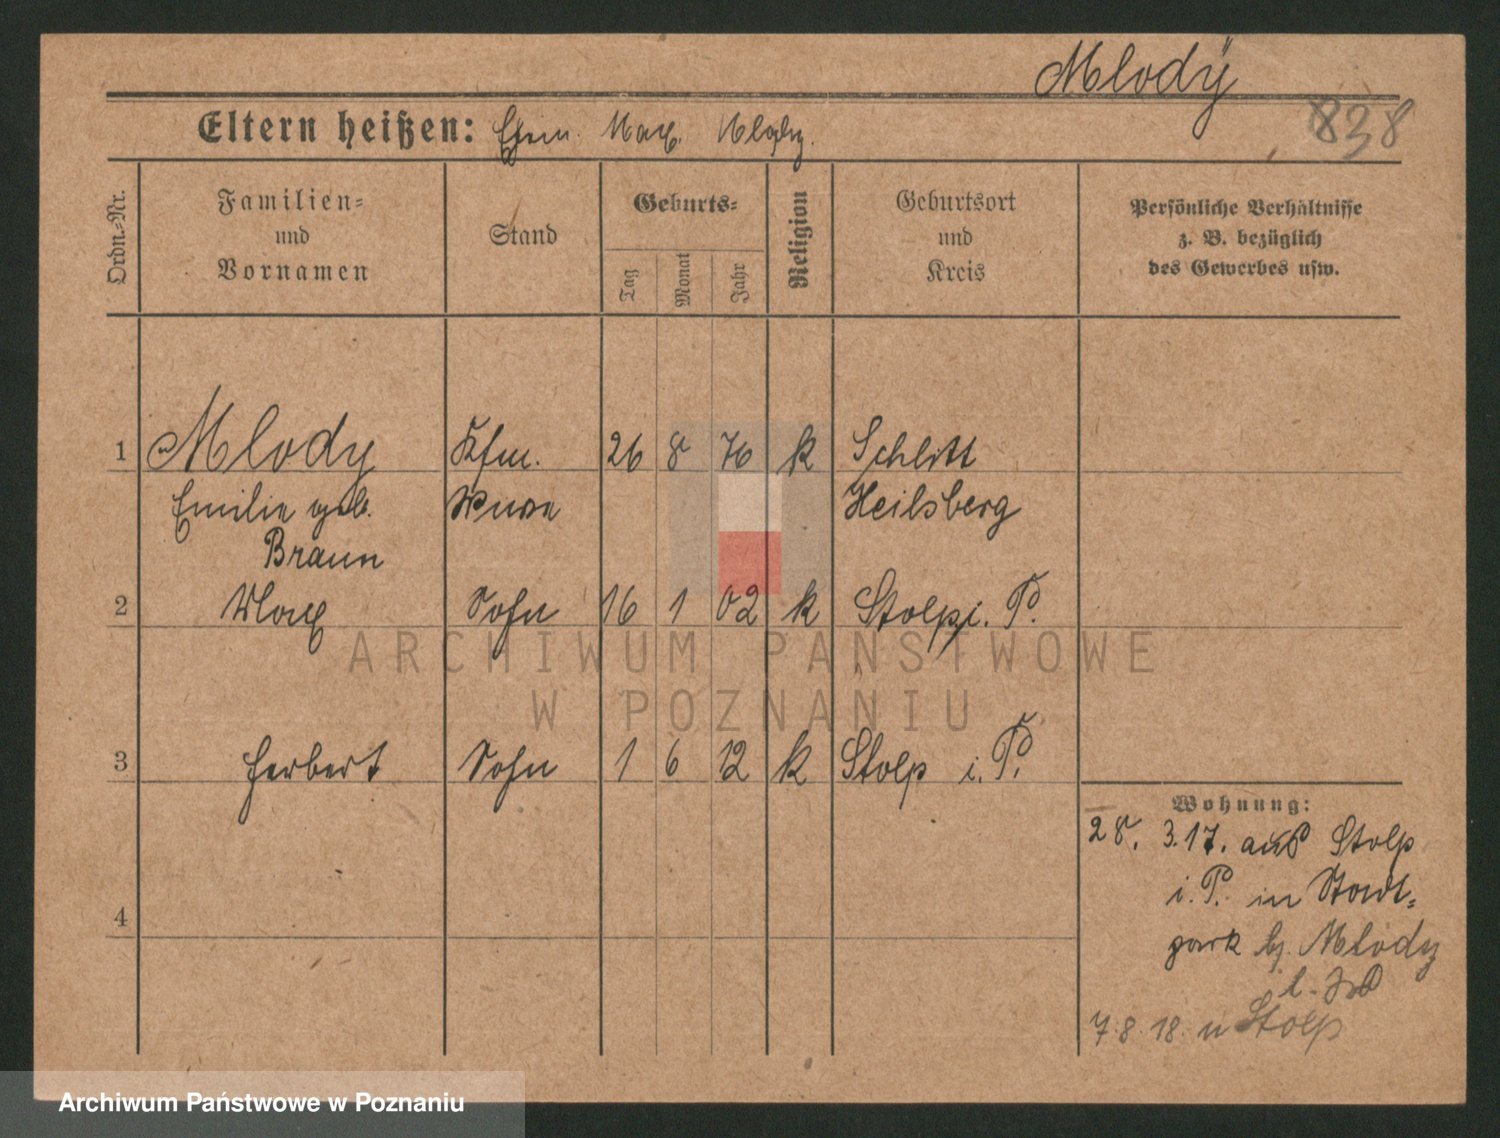 Mlodÿ
838
Eltern heißen: Ehem. Max. Mlody.
Ordn.-Nr.
Familien-
und
Vornamen
Stand
Geburts-
Tag
Monat
Jahr
Religion
Geburtsort
und
Kreis
Persönliche Verhältnisse
z. B. bezüglich
des Gewerbes usw.
1 Mlody Kfm. 26 8 76 k Schlitt
Emilie geb. Wwe Heilsberg
Braun
2 Max Sohn 16 1 02 k Stolp i. P.
3 Herbert Sohn 1 6 12 k Stolp i. P.
4
Wohnung:
28. 3. 17. aus Stolp
i. P. in Stadt-
park b. Mlody
7. 8. 18. n Stolp
ARCHIWUM PAŃSTWOWE
W POZNANIU
Archiwum Państwowe w Poznaniu